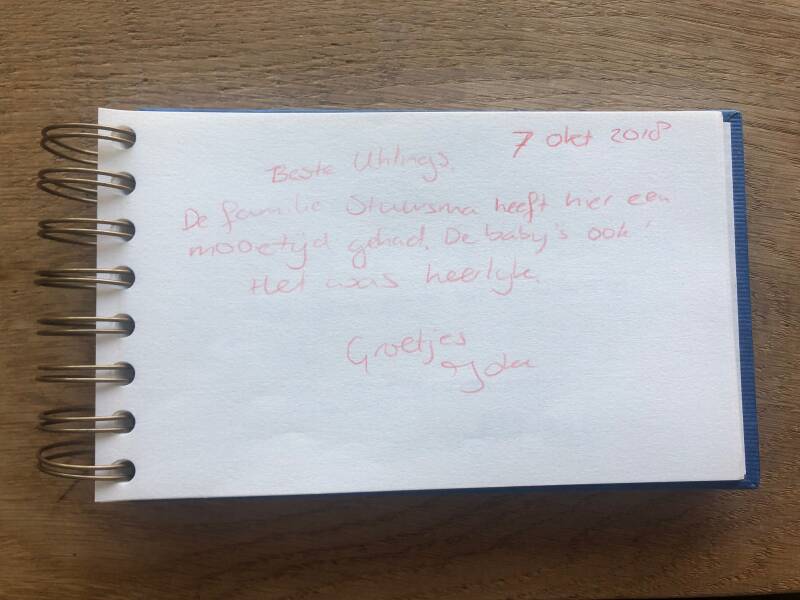 7 okt 2018
Beste Uhlings.
De familie Stuursma heeft hier een
mooie tijd gehad. De baby's ook!
Het was heerlijk.
Groetjes